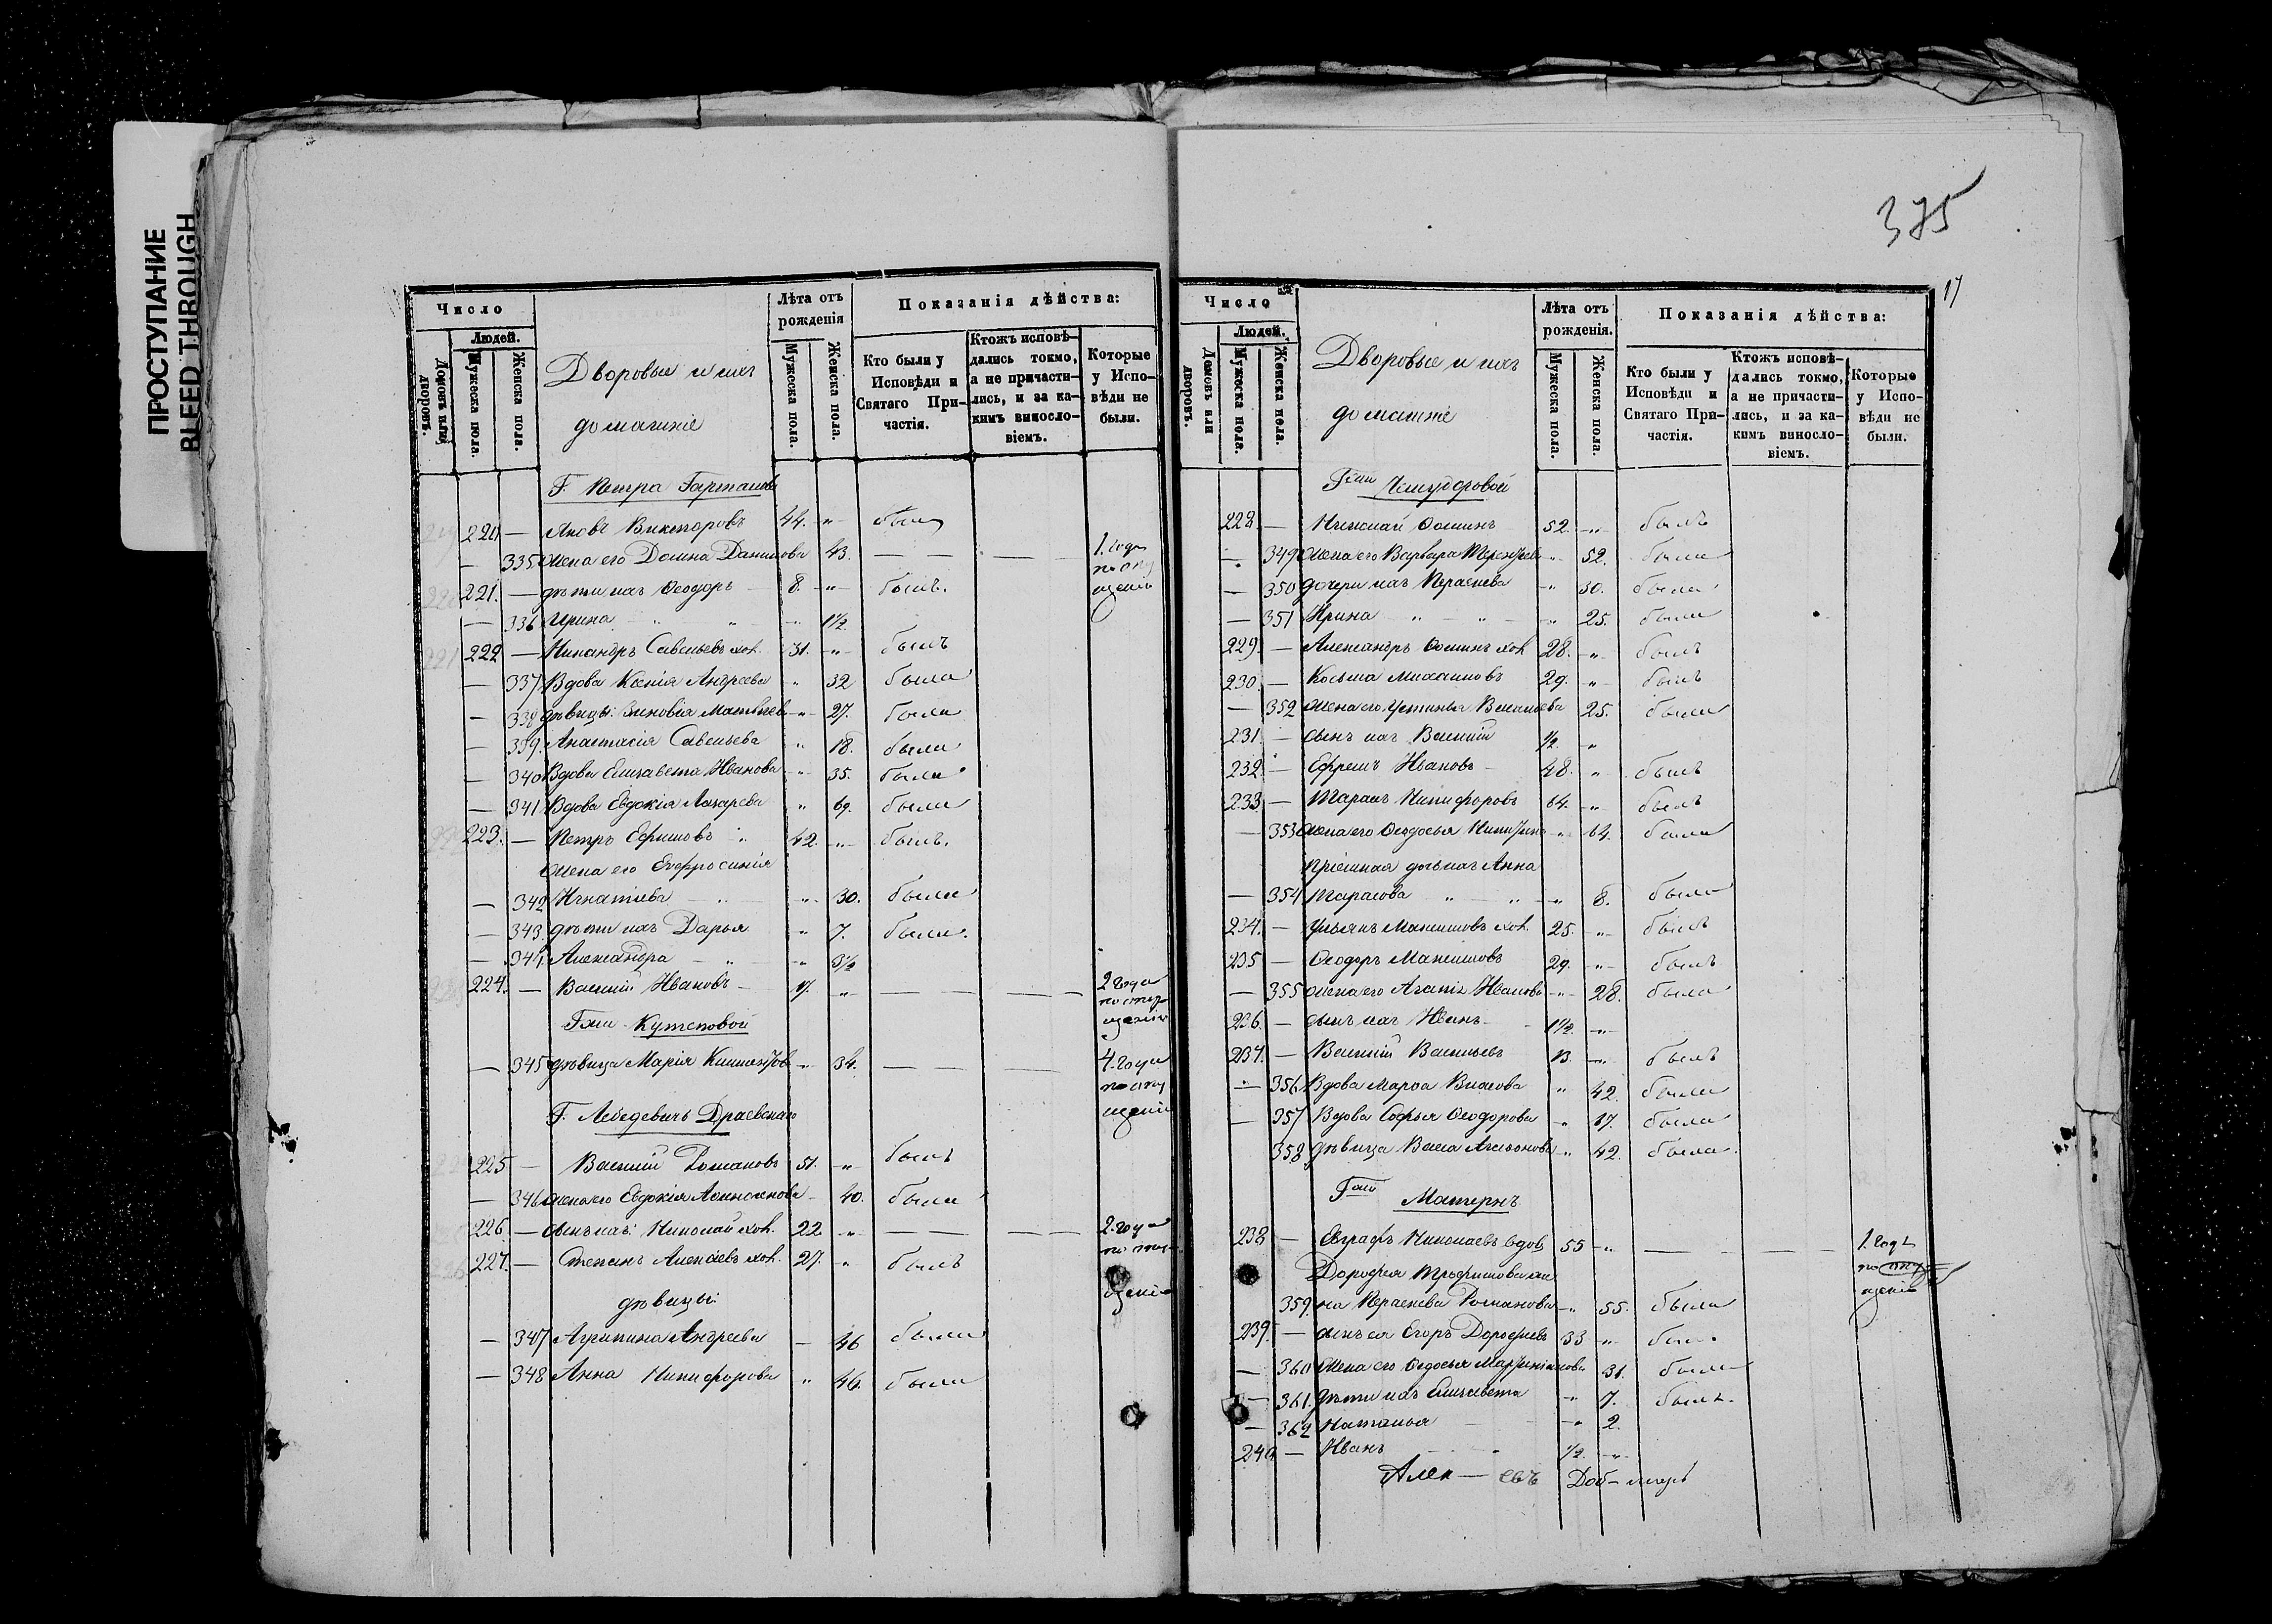 ПРОСТУПАНИЕ
BLEED THROUGH
Число
Людей.
Домовъ или дворовъ.
Мужеска пола.
Женска пола.
Дворовые и ихъ
домашніе
Лѣта отъ рожденія
Мужеска пола.
Женска пола.
Показанія дѣйства:
Кто были у Исповѣди и Святаго Причастія.
Ктожъ исповѣдались токмо, а не причастились, и за какимъ винословіемъ.
Которые у Исповѣди не были.
Г. Петра
220 — Яковъ Викторовъ 44. -"- былъ
— 335 жена его Домна Данилова 43. — — — 1. годъ по опущенію
221. — дѣти ихъ Ѳеодоръ 8. -"- былъ.
— 336 Ирина " " -"- 1½
222 — Никандръ Савельевъ хол. 31. -"- былъ
— 337 Вдова Ксенія Андреева " 32 была
— 338 дѣвицы: Зиновія Матвѣева -"- 27. была
— 339. Анастасія Савельева " 18. была
— 340 Вдова Елизавета Иванова -"- 35. была
— 341 Вдова Евдокія Лазарева " 69. была
223. — Петръ Ефимовъ " 42. -"- былъ.
жена его Евфросинія
— 342 Игнатіева -"- 30. была
— 343. дѣти ихъ Дарья " 7. была.
— 344. Александра — " -"- 3½
224. — Василій Ивановъ 17. -"- — — — — 2 года по опущенію
Гжи Кутеповой
— 345 дѣвица Марія -"- 34. — — — 4. года по опущенію
Г. Лебедевичъ Драевскаго
225 — Василій Романовъ 51. -"- былъ
— 346 жена его Евдокія 40. была
226. — сынъ ихъ: Николай хол. 22 -"- — — — — 2. года по опущенію
227. — Степанъ Алексѣевъ хол. 27. " былъ
дѣвицы:
— 347 Агрипина Андреева — 46 была
— 348 Анна Никифорова " 46. была
375
17
Число
Людей.
Домовъ или дворовъ.
Мужеска пола.
Женска пола.
Дворовые и ихъ
домашніе
Лѣта отъ рожденія.
Мужеска пола.
Женска пола.
Показанія дѣйства:
Кто были у Исповѣди и Святаго Причастія.
Ктожъ исповѣдались токмо, а не причастились, и за какимъ винословіемъ.
Которые у Исповѣди не были.
Гжи
228 — Николай Ѳоминъ 52. -"- былъ
— 349 жена его Варвара -"- 52. была
— 350 дочери ихъ Параскева -"- 30. была
— 351 Ирина " — " — " 25. была
229. — Александръ Ѳоминъ хол. 28. -"- былъ
230. — Косьма Михаиловъ 29. " былъ
— 352 жена его Устинья 25. была
231. — сынъ ихъ Василій ½. "
232. — Ефремъ Ивановъ 48. " былъ
233 — Тарасъ Никифоровъ 64. -"- былъ
— 353 жена его Ѳеодосья -"- 64. была
Пріемная дочь ихъ Анна
— 354 Тарасова " — " — " 8. была
234. — Ульянъ Максимовъ хол. 25. -"- былъ
235 — Ѳеодоръ Максимовъ 29. -"- былъ
— 355 жена его Агапія Иванова -"- 28. была
236. — сынъ ихъ Иванъ 1½ -"-
237. — Василій Васильевъ 13. -"- былъ
— 356 Вдова Марѳа Власова " 42. была
— 357 Вдова Софья Ѳеодорова " 17. была
358 дѣвица Васса Агаѳонова " 42. была
Гжи Матернъ
238 — Евграфъ Николаевъ вдов. 55 -"- — — — 1. годъ по опущенію
Дорофея Трофимова же
359. на Параскева Романова -"- 55. была
239. — сынъ ея Егоръ Дорофеевъ 33 -"- былъ
— 360 жена его Ѳедосья 31. была
— 361. дѣти ихъ Елизавета " 7. была.
— 362 Наталья -"- 2.
240 — Иванъ ½. -"-